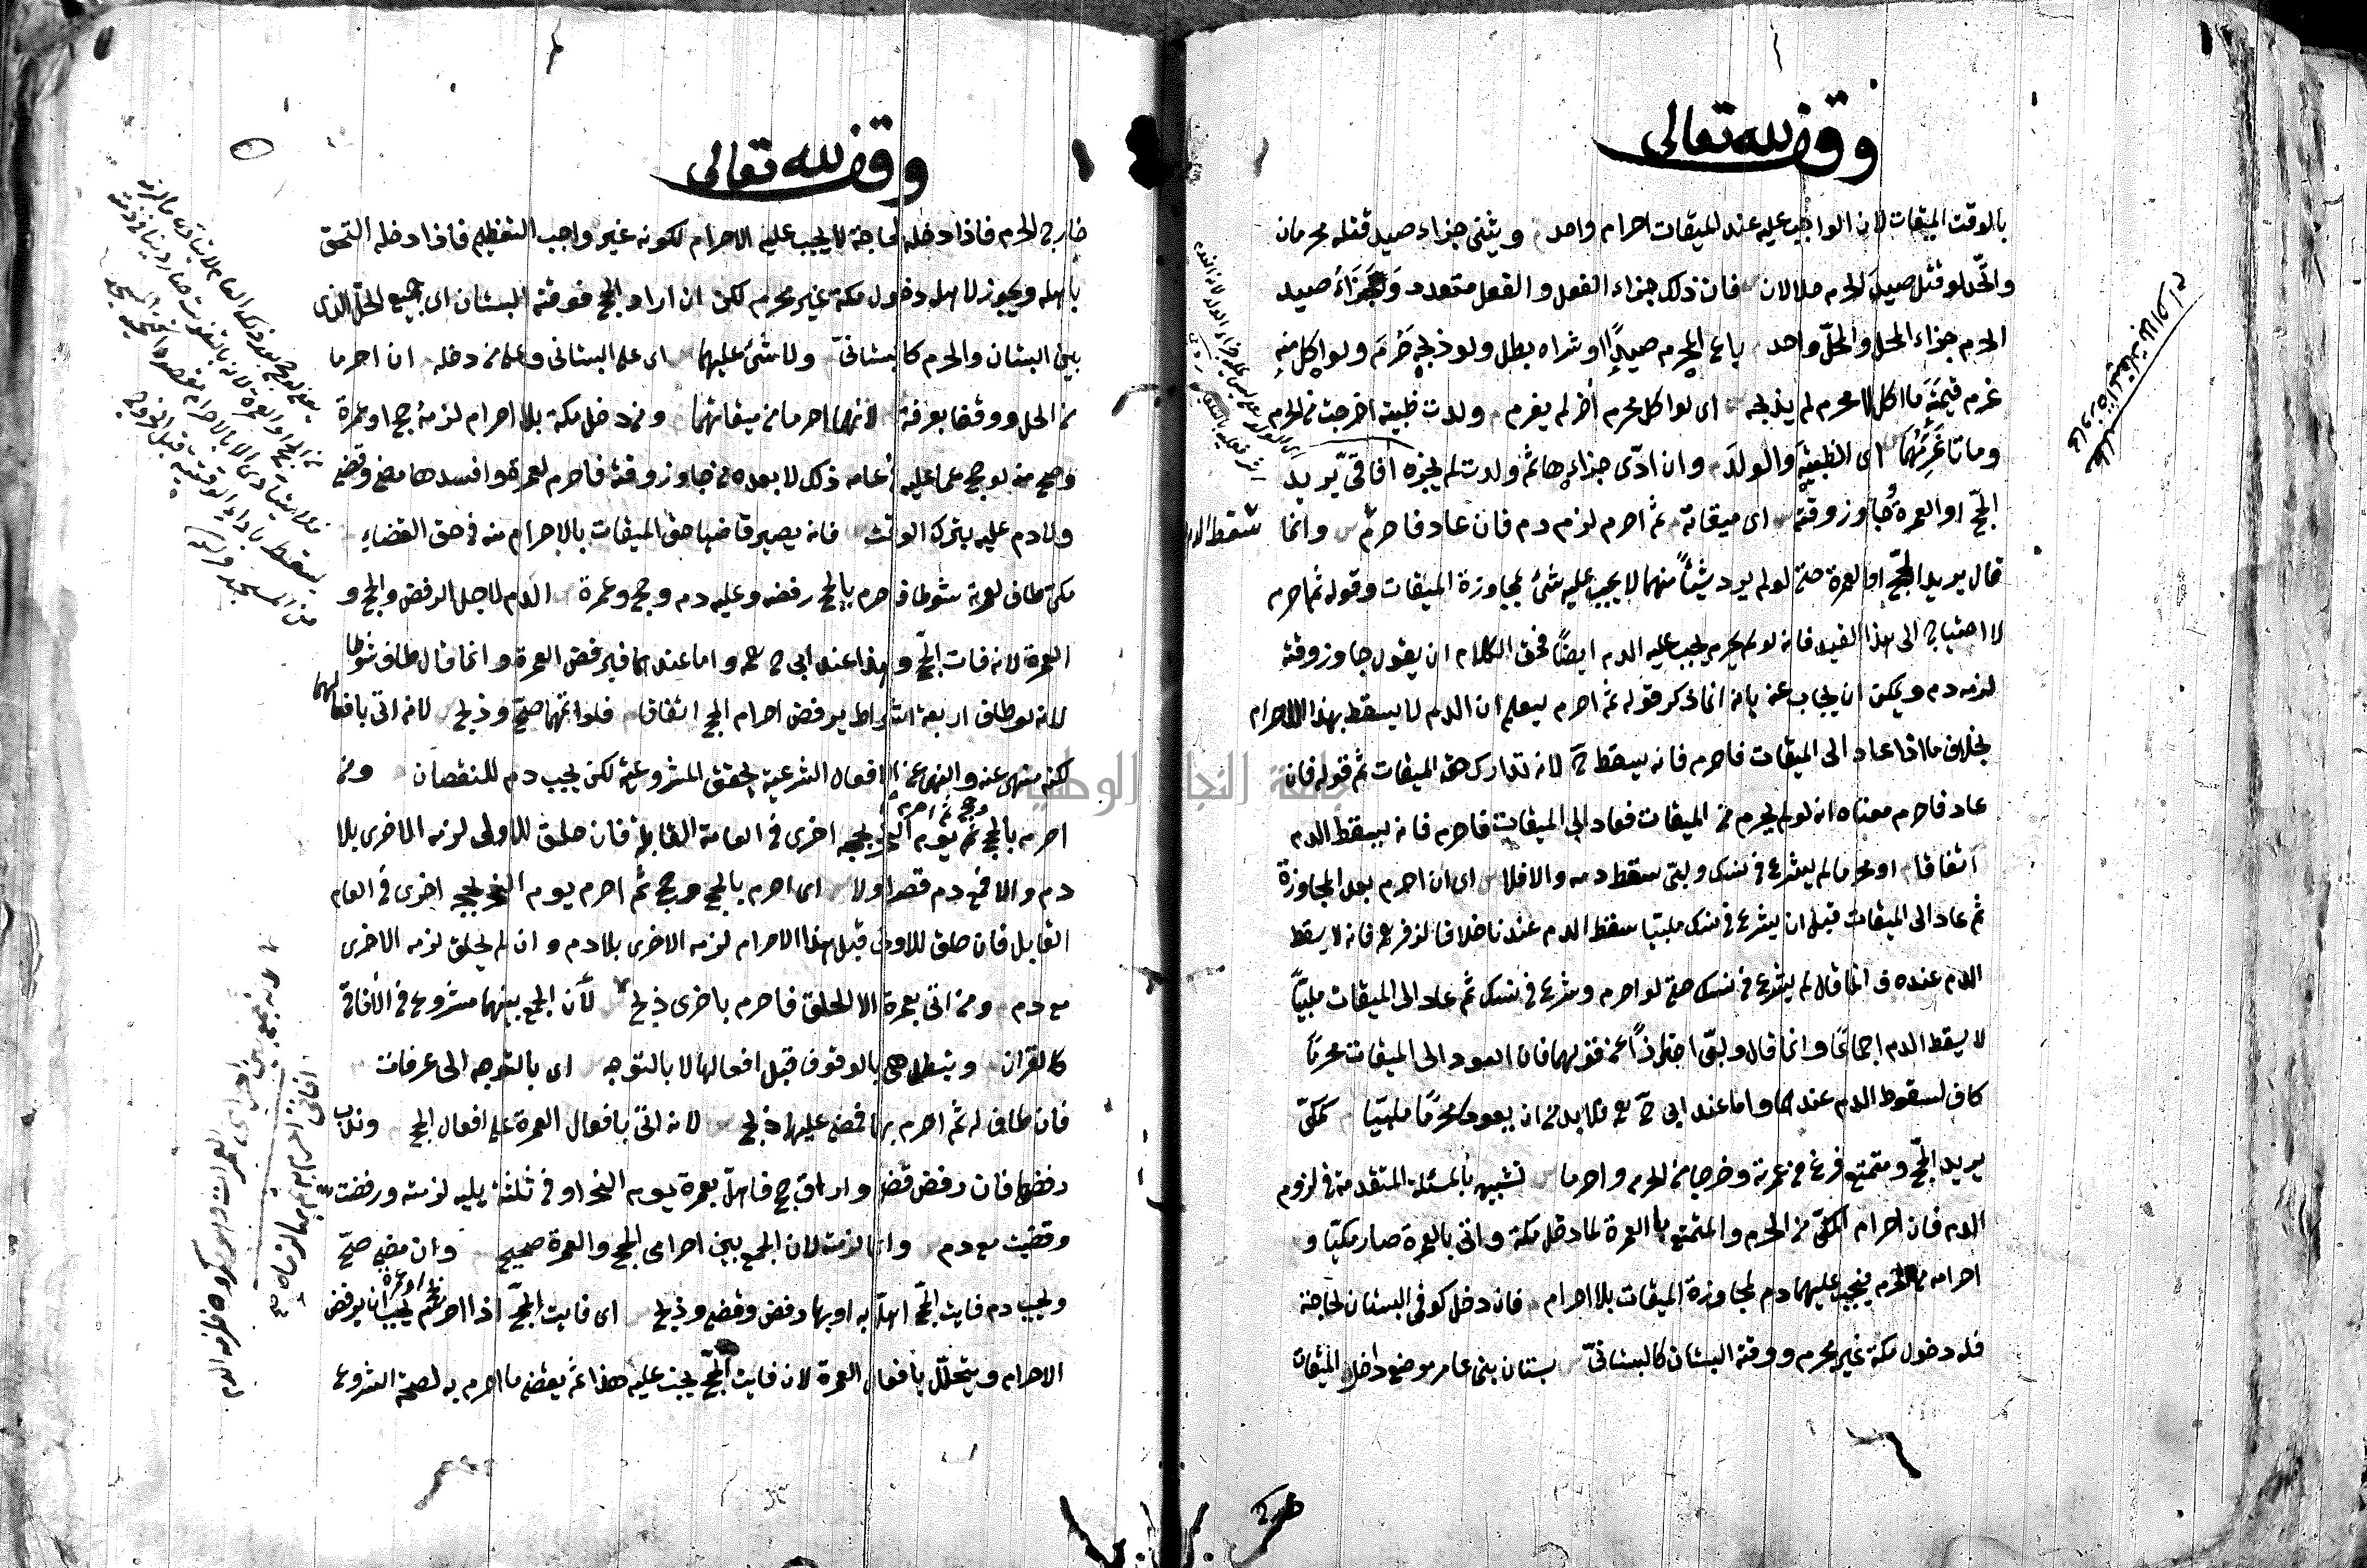 وقف لله تعالى
بالوقت الميقات لان الواجب عليه عند الميقات احرام واحد ويثنى جزاء صيد قتله محرمان
واتحد لو قتل صيد الحرم حلالان فان ذلك جزاء الفعل والفعل متعدد وجزاء صيد
الحرم جزاء المحل والمحل واحد باع المحرم صيدا او شراه بطل ولو ذبحه حرم ولو اكل منه
غرم قيمة ما اكل لا محرم لم يذبحه اى لو اكل محرم آخر لم يغرم ولدت ظبية اخرجت من الحرم
وماتا غرمهما اى الظبية والولد وان ادّى جزاءها ثم ولدت لم يجزه آفاقىّ يريد
الحجّ او العمرة وجاوز وقته اى ميقاته ثم احرم لزم دم فان عاد فاحرم وانما
قال يريد الحجّ او العمرة حتى لو لم يرد شيئًا منهما لا يجب عليه شئ لمجاوزة الميقات وقوله ثم احرم
لا احتياج الى هذا القيد فانه لو لم يحرم يجب عليه الدم ايضًا فحق الكلام ان يقول جاوز وقته
لزمه دم ويمكن ان يجاب عنه بانه انما ذكر قوله ثم احرم ليعلم ان الدم لا يسقط بهذا الاحرام
بخلاف ما اذا عاد الى الميقات فاحرم فانه يسقط ح لانه تدارك حق الميقات ثم قوله فان
عاد فاحرم معناه انه لو لم يحرم من الميقات فعاد الى الميقات فاحرم فانه يسقط الدم
اتفاقا او محرما لم يشرع فى نسك ولبّى سقط دمه والا فلا اى ان احرم بعد المجاوزة
ثم عاد الى الميقات قبل ان يشرع فى نسك ملبيا سقط الدم عندنا خلافا لزفر فانه لا يسقط
الدم عنده و انما قال لم يشرع فى نسك حتى لو احرم وشرع فى نسك ثم عاد الى الميقات ملبيّا
لا يسقط الدم اجماعًا وانما قال ولبّى احترازًا عن قولهما فان العود الى الميقات محرمًا
كاف لسقوط الدم عندهما واما عند ابى ح فلا بد من ان يعود محرمًا ملبيًا كمكىّ
يريد الحجّ ومتمتع فرغ من عمرته وخرجا من الحرم واحرما تشبيه بالمسئلة المتقدمة فى لزوم
الدم فان احرام المكىّ من الحرم والمتمتع بالعمرة لما دخل مكة واتى بالعمرة صار مكيّا و
احرامه من الحرم فيجب عليهما دم لمجاوزة الميقات بلا احرام فان دخل كوفى البستان لحاجة
فله دخول مكة غير محرم ووقته البستان كالبستانىّ بستان بنى عامر موضع داخل الميقات
وقف لله تعالى
خارج الحرم فاذا دخله لحاجة لا يجب عليه الاحرام لكونه غير واجب التعظيم فاذا دخله التحق
باهله ويجوز لاهله دخول مكة غير محرم لكن ان اراد الحج فوقته البستان اى جميع الحلّ الذى
بين البستان والحرم كالبستانىّ ولا شئ عليهما اى على البستانى وعلى من دخله ان احرما
من الحل ووقفا بعرفة لانهما احرما من ميقاتهما ومن دخل مكة بلا احرام لزمه حج او عمرة
وصح منه لو حج عما عليه فى عامه ذلك لا بعده من جاوز وقته فاحرم لعمرة وافسدها مضى وقضى
ولا دم عليه بترك الوقت فانه يصير قاضيا حق الميقات بالاحرام منه فى حق القضاء
مكى طاف لعمرته شوطا فاحرم بالحج رفضه وعليه دم وحج وعمرة الدم لاجل الرفض والحج و
العمرة لانه فات الحجّ وهذا عند ابى ح واما عندهما فيرفض العمرة وانما قال طاف شوطا
لانه لو طاف اربعة اشواط يرفض احرام الحج اتفاقا فلو اتمهما صحّ وذبح لانه اتى بافعالهما
لكنه منهى عنه والنهى عن الافعال الشرعية يحقق المشروعية لكن يجب دم للنقصان ومن
وحج ثم احرم
احرم بالحج ثم يوم النحر بحجة اخرى فى العامة القابلة فان حلق للاولى لزمه الاخرى بلا
دم والا فمع دم قصر اولا اى احرم بالحج وحج ثم احرم يوم النحر بحجة اخرى فى العام
القابل فان حلق للاولى قبل هذا الاحرام لزمه الاخرى بلا دم وان لم يحلق لزمه الاخرى
مع دم ومن اتى بعمرة الا الحلق فاحرم باخرى ذبح لأن الجمع بينهما مشروع فى الآفاقى
كالقران وتبطل هى بالوقوف قبل افعالها لا بالتوجه اى بالتوجه الى عرفات
فان طاف له ثم احرم بها فمضى عليهما ذبح لانه اتى بافعال العمرة على افعال الحج وندب
رفضها فان رفض قضى واراق حج فاهلّ بعمرة يوم النحر او فى ثلثة يليه لزمته ورفضت
وقضيت مع دم وانما لزمته لان الجمع بين احرامى الحج والعمرة صحيح وان مضى صحّ
ويجب دم فايت الحجّ اهلّ به او بها رفض وقضى وذبح اى فايت الحجّ اذا احرم يجب ان يرفض
الاحرام ويتحلّل بافعال العمرة لان فايت الحجّ يجب عليه هذا ثم يقضى ما احرم به لصحة الشروع